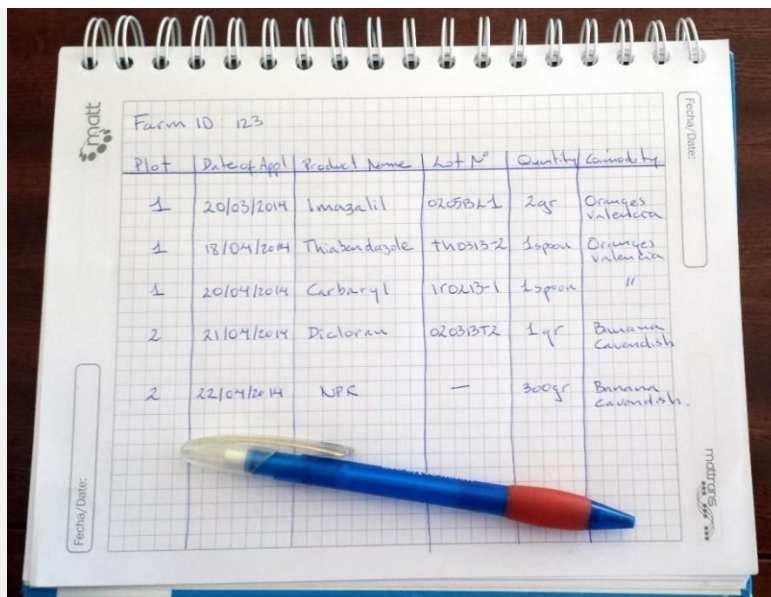 matt
Fecha/Date:
Farm ID 123
Plot Date of Appl Product Name Lot Nº Quntity Comodity
1 20/03/2014 Imazalil 0205BL1 2gr Oranges
Valencia
1 18/04/2014 Thiabendazole TH0313-2 1spoon Oranges
Valencia
1 20/04/2014 Carbaryl 1r0213-1 1spoon "
2 21/04/2014 Dicloran 020313T2 1gr Banana
Cavendish
2 22/04/2014 NPK — 300gr Banana
Cavendish.
Fecha/Date:
mattrans